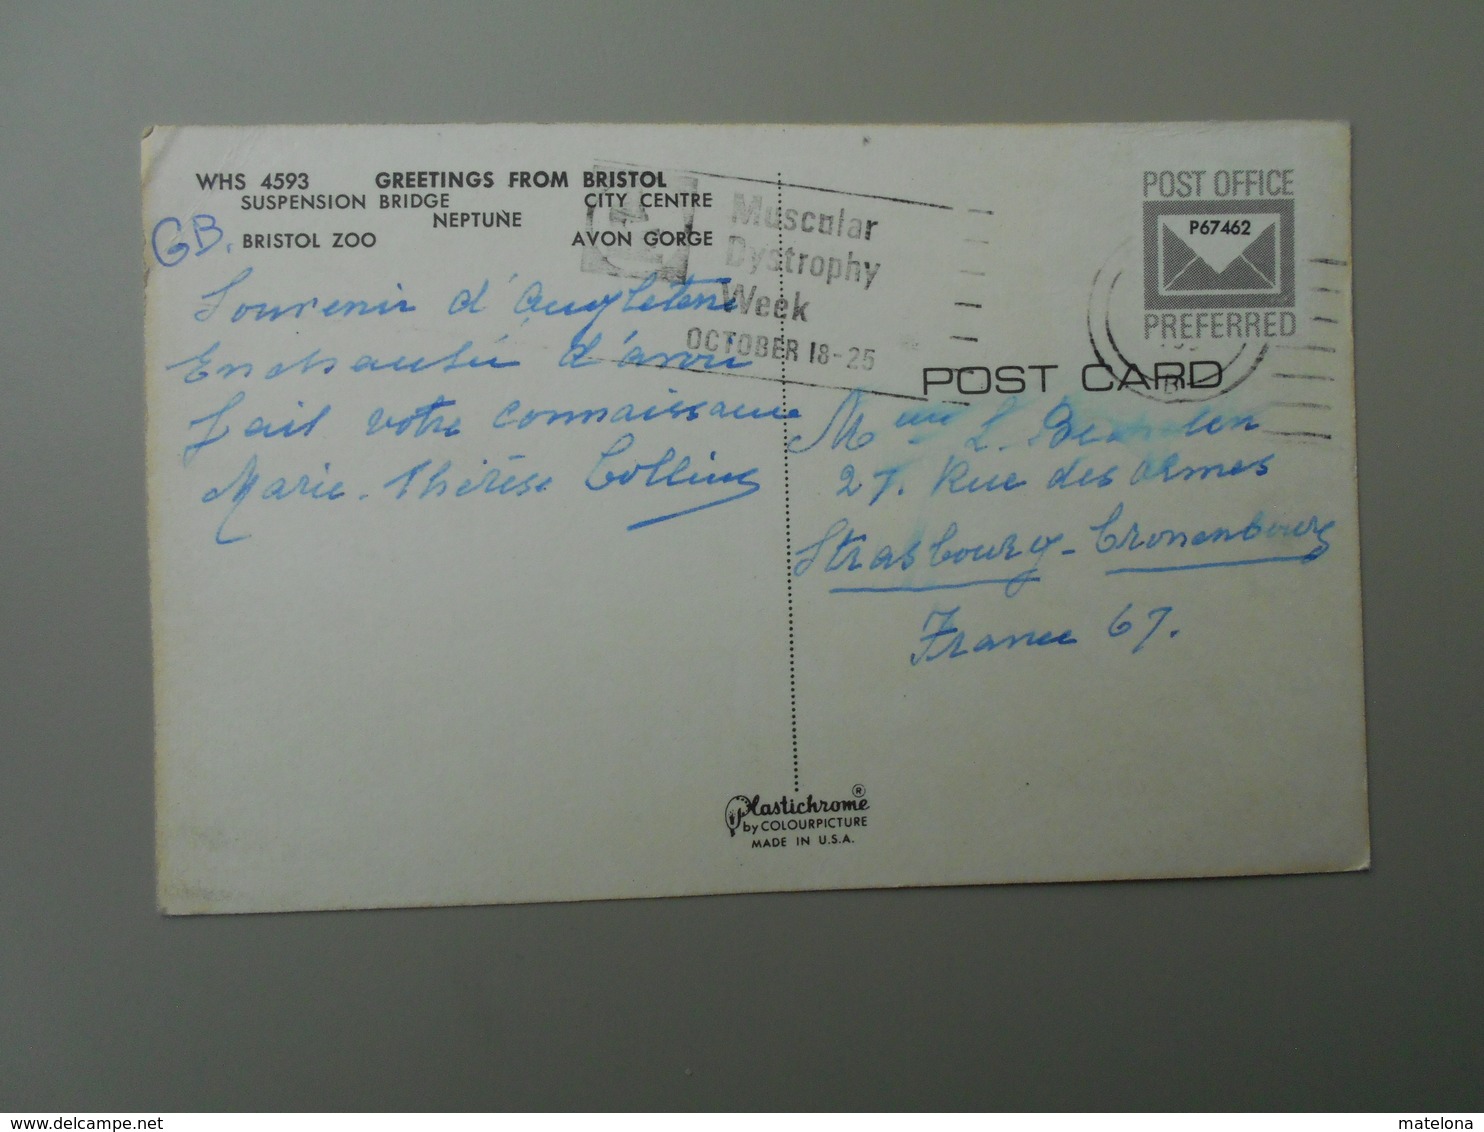 WHS 4593 GREETINGS FROM BRISTOL
SUSPENSION BRIDGE CITY CENTRE
NEPTUNE
BRISTOL ZOO AVON GORGE
GB.
Souvenir d'Angleterre
Enchantée d'avoir
fait votre connaissance
Marie-Thérèse Collins
Muscular
Dystrophy
Week
OCTOBER 18-25
POST OFFICE
P67462
PREFERRED
POST CARD
Mme L.
27. Rue des Ormes
Strasbourg-Cronenbourg
France 67.
Plastichrome ®
by COLOURPICTURE
MADE IN U.S.A.
matelona